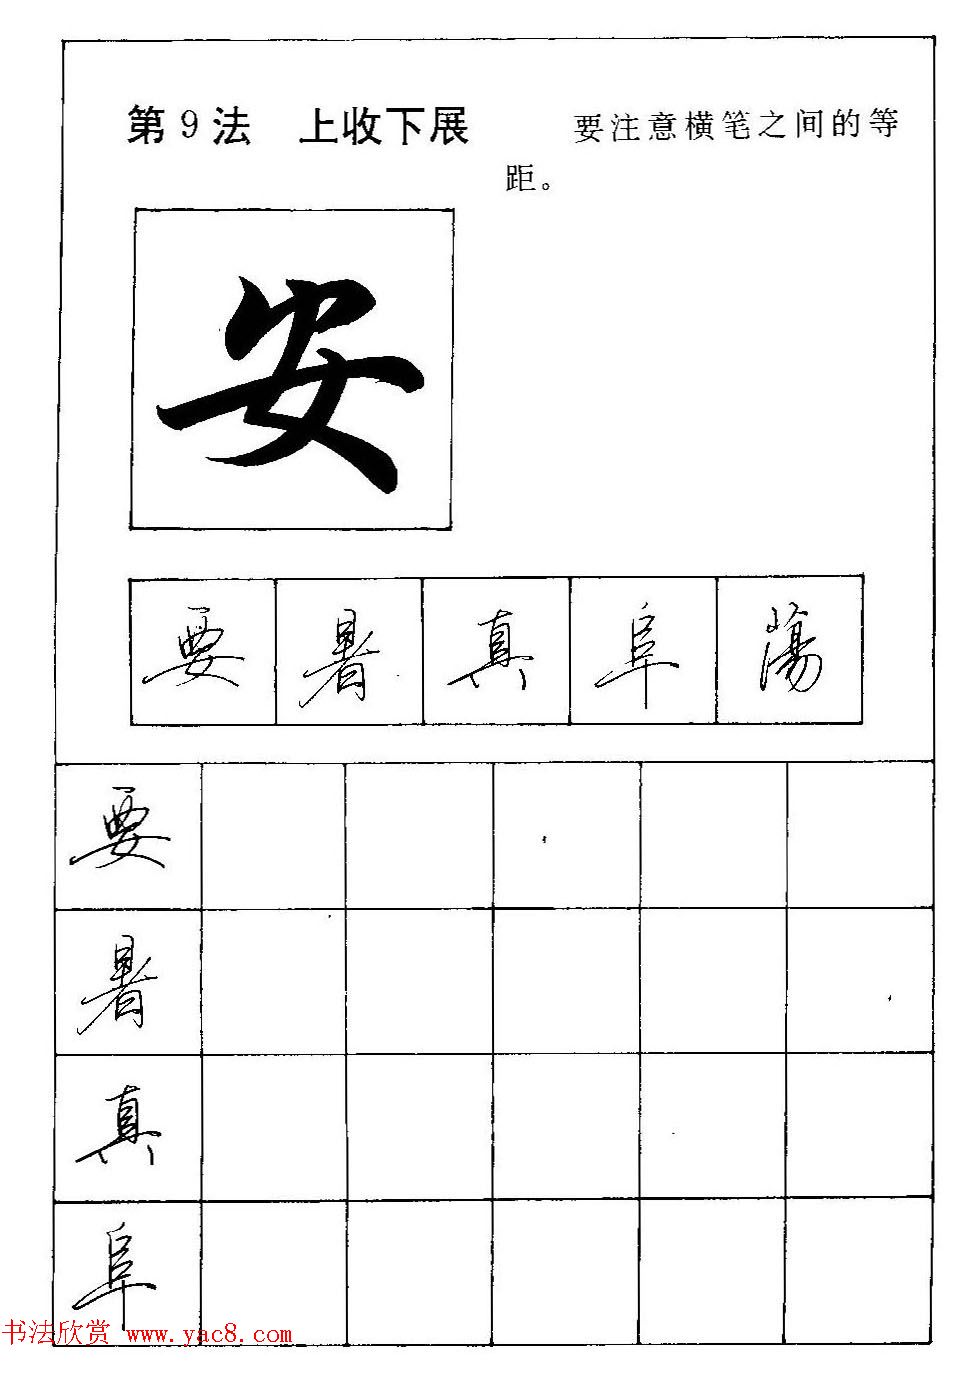 第9法 上收下展 要注意横笔之间的等
距。
安
要 暑 真 阜 蕩
要
暑
真
阜
书法欣赏 www.yac8.com